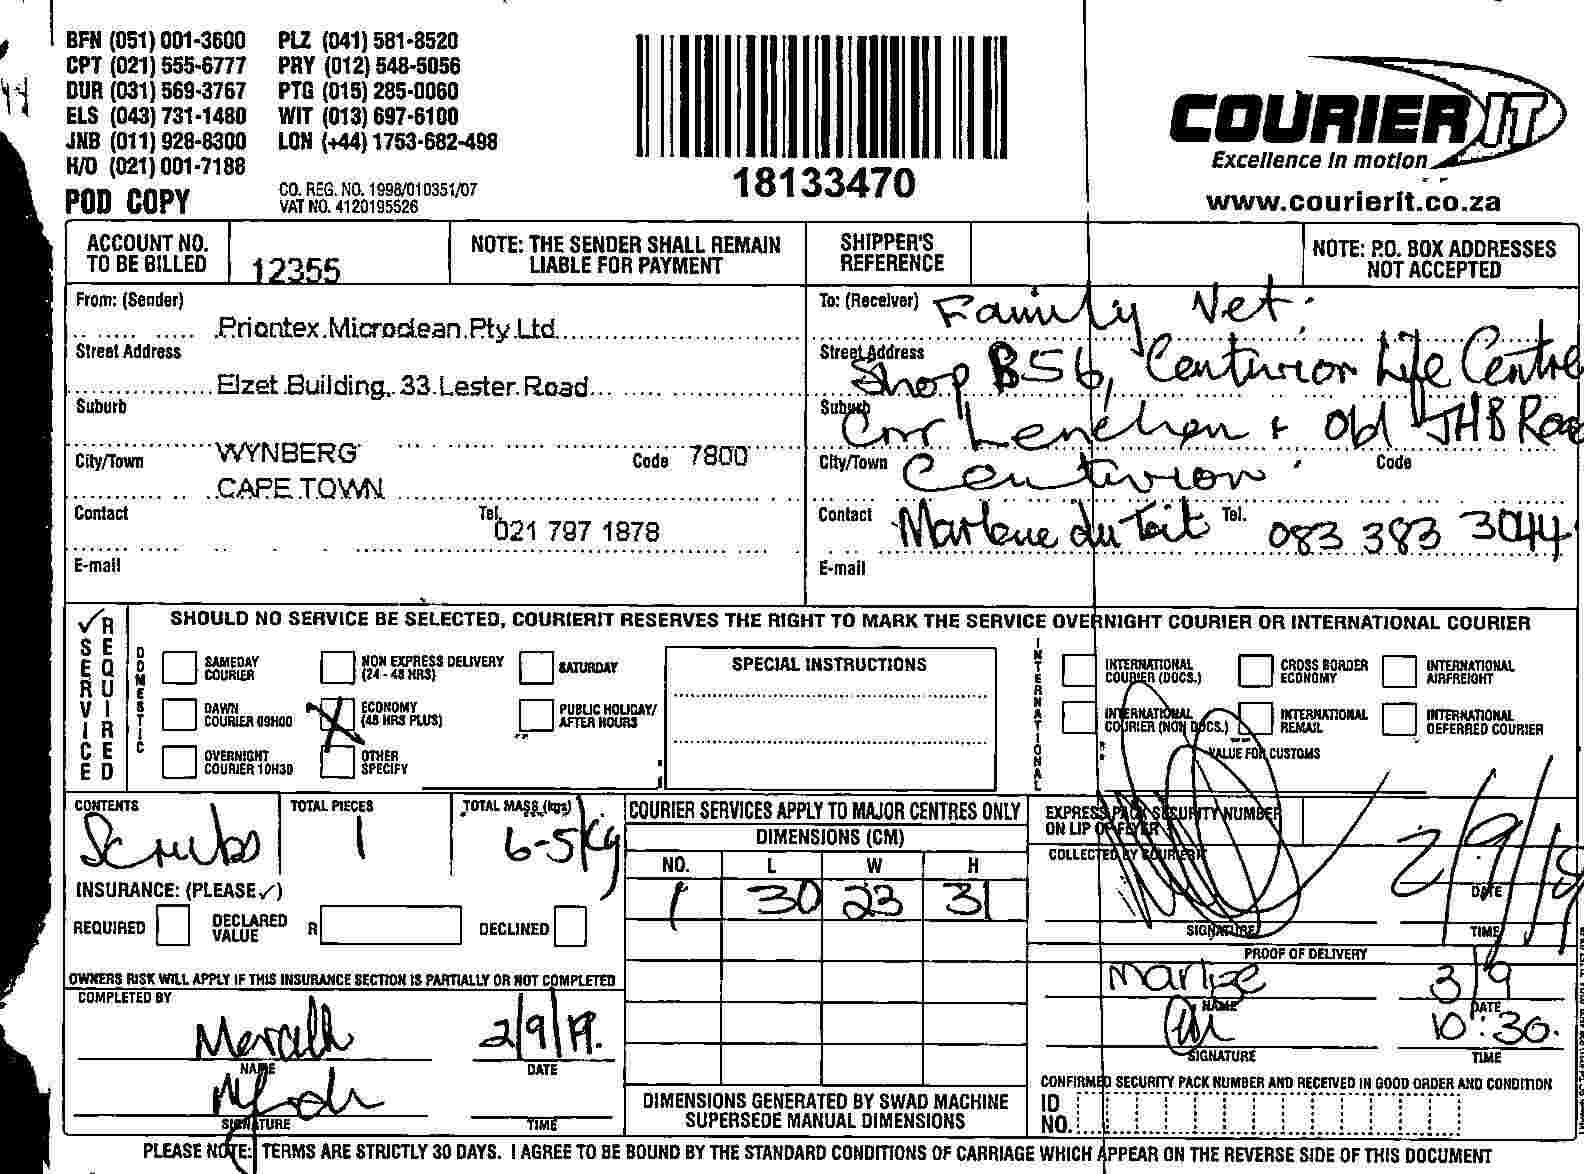 BFN (051) 001-3600 PLZ (041) 581-8520
CPT (021) 555-6777 PRY (012) 548-5056
DUR (031) 569-3767 PTG (015) 285-0060
ELS (043) 731-1480 WIT (013) 697-6100
JNB (011) 928-8300 LON (+44) 1753-682-498
H/O (021) 001-7188
POD COPY
CO. REG. NO. 1998/010351/07
VAT NO. 4120195526
18133470
COURIER IT
Excellence in motion
www.courierit.co.za
ACCOUNT NO. TO BE BILLED
12355
NOTE: THE SENDER SHALL REMAIN LIABLE FOR PAYMENT
SHIPPER'S REFERENCE
NOTE: P.O. BOX ADDRESSES NOT ACCEPTED
From: (Sender)
Priontex Microclean Pty Ltd
Street Address
Elzet Building, 33 Lester Road
Suburb
WYNBERG
City/Town
Code 7800
CAPE TOWN
Contact
Tel. 021 797 1878
E-mail
To: (Receiver) Family Vet.
Street Address
Shop B56, Centurion Life Centre
Suburb
Cnr Lenchen + Old JHB Road
City/Town Centurion
Code
Contact Marlene du Toit Tel. 083 383 3044
E-mail
SERVICE REQUIRED
SHOULD NO SERVICE BE SELECTED, COURIERIT RESERVES THE RIGHT TO MARK THE SERVICE OVERNIGHT COURIER OR INTERNATIONAL COURIER
DOMESTIC
SAMEDAY COURIER
NON EXPRESS DELIVERY (24 - 48 HRS)
SATURDAY
DAWN COURIER 09H00
ECONOMY (48 HRS PLUS)
PUBLIC HOLIDAY/ AFTER HOURS
OVERNIGHT COURIER 10H30
OTHER SPECIFY
SPECIAL INSTRUCTIONS
INTERNATIONAL
INTERNATIONAL COURIER (DOCS.)
CROSS BORDER ECONOMY
INTERNATIONAL AIRFREIGHT
INTERNATIONAL COURIER (NON DOCS.)
INTERNATIONAL REMAIL
INTERNATIONAL DEFERRED COURIER
VALUE FOR CUSTOMS
CONTENTS
Scrubs
TOTAL PIECES
1
TOTAL MASS (kgs)
6-5kg
INSURANCE: (PLEASE ✓)
REQUIRED
DECLARED VALUE
R
DECLINED
OWNERS RISK WILL APPLY IF THIS INSURANCE SECTION IS PARTIALLY OR NOT COMPLETED
COMPLETED BY
2/9/19.
NAME
DATE
SIGNATURE
TIME
COURIER SERVICES APPLY TO MAJOR CENTRES ONLY
DIMENSIONS (CM)
NO. L W H
1 30 23 31
DIMENSIONS GENERATED BY SWAD MACHINE
SUPERSEDE MANUAL DIMENSIONS
EXPRESS PACK SECURITY NUMBER
ON LIP OF FLYER
COLLECTED BY COURIERIT
2/9/19
DATE
SIGNATURE
TIME
PROOF OF DELIVERY
3/9
NAME
DATE
10:30.
SIGNATURE
TIME
CONFIRMED SECURITY PACK NUMBER AND RECEIVED IN GOOD ORDER AND CONDITION
ID NO.
PLEASE NOTE: TERMS ARE STRICTLY 30 DAYS. I AGREE TO BE BOUND BY THE STANDARD CONDITIONS OF CARRIAGE WHICH APPEAR ON THE REVERSE SIDE OF THIS DOCUMENT